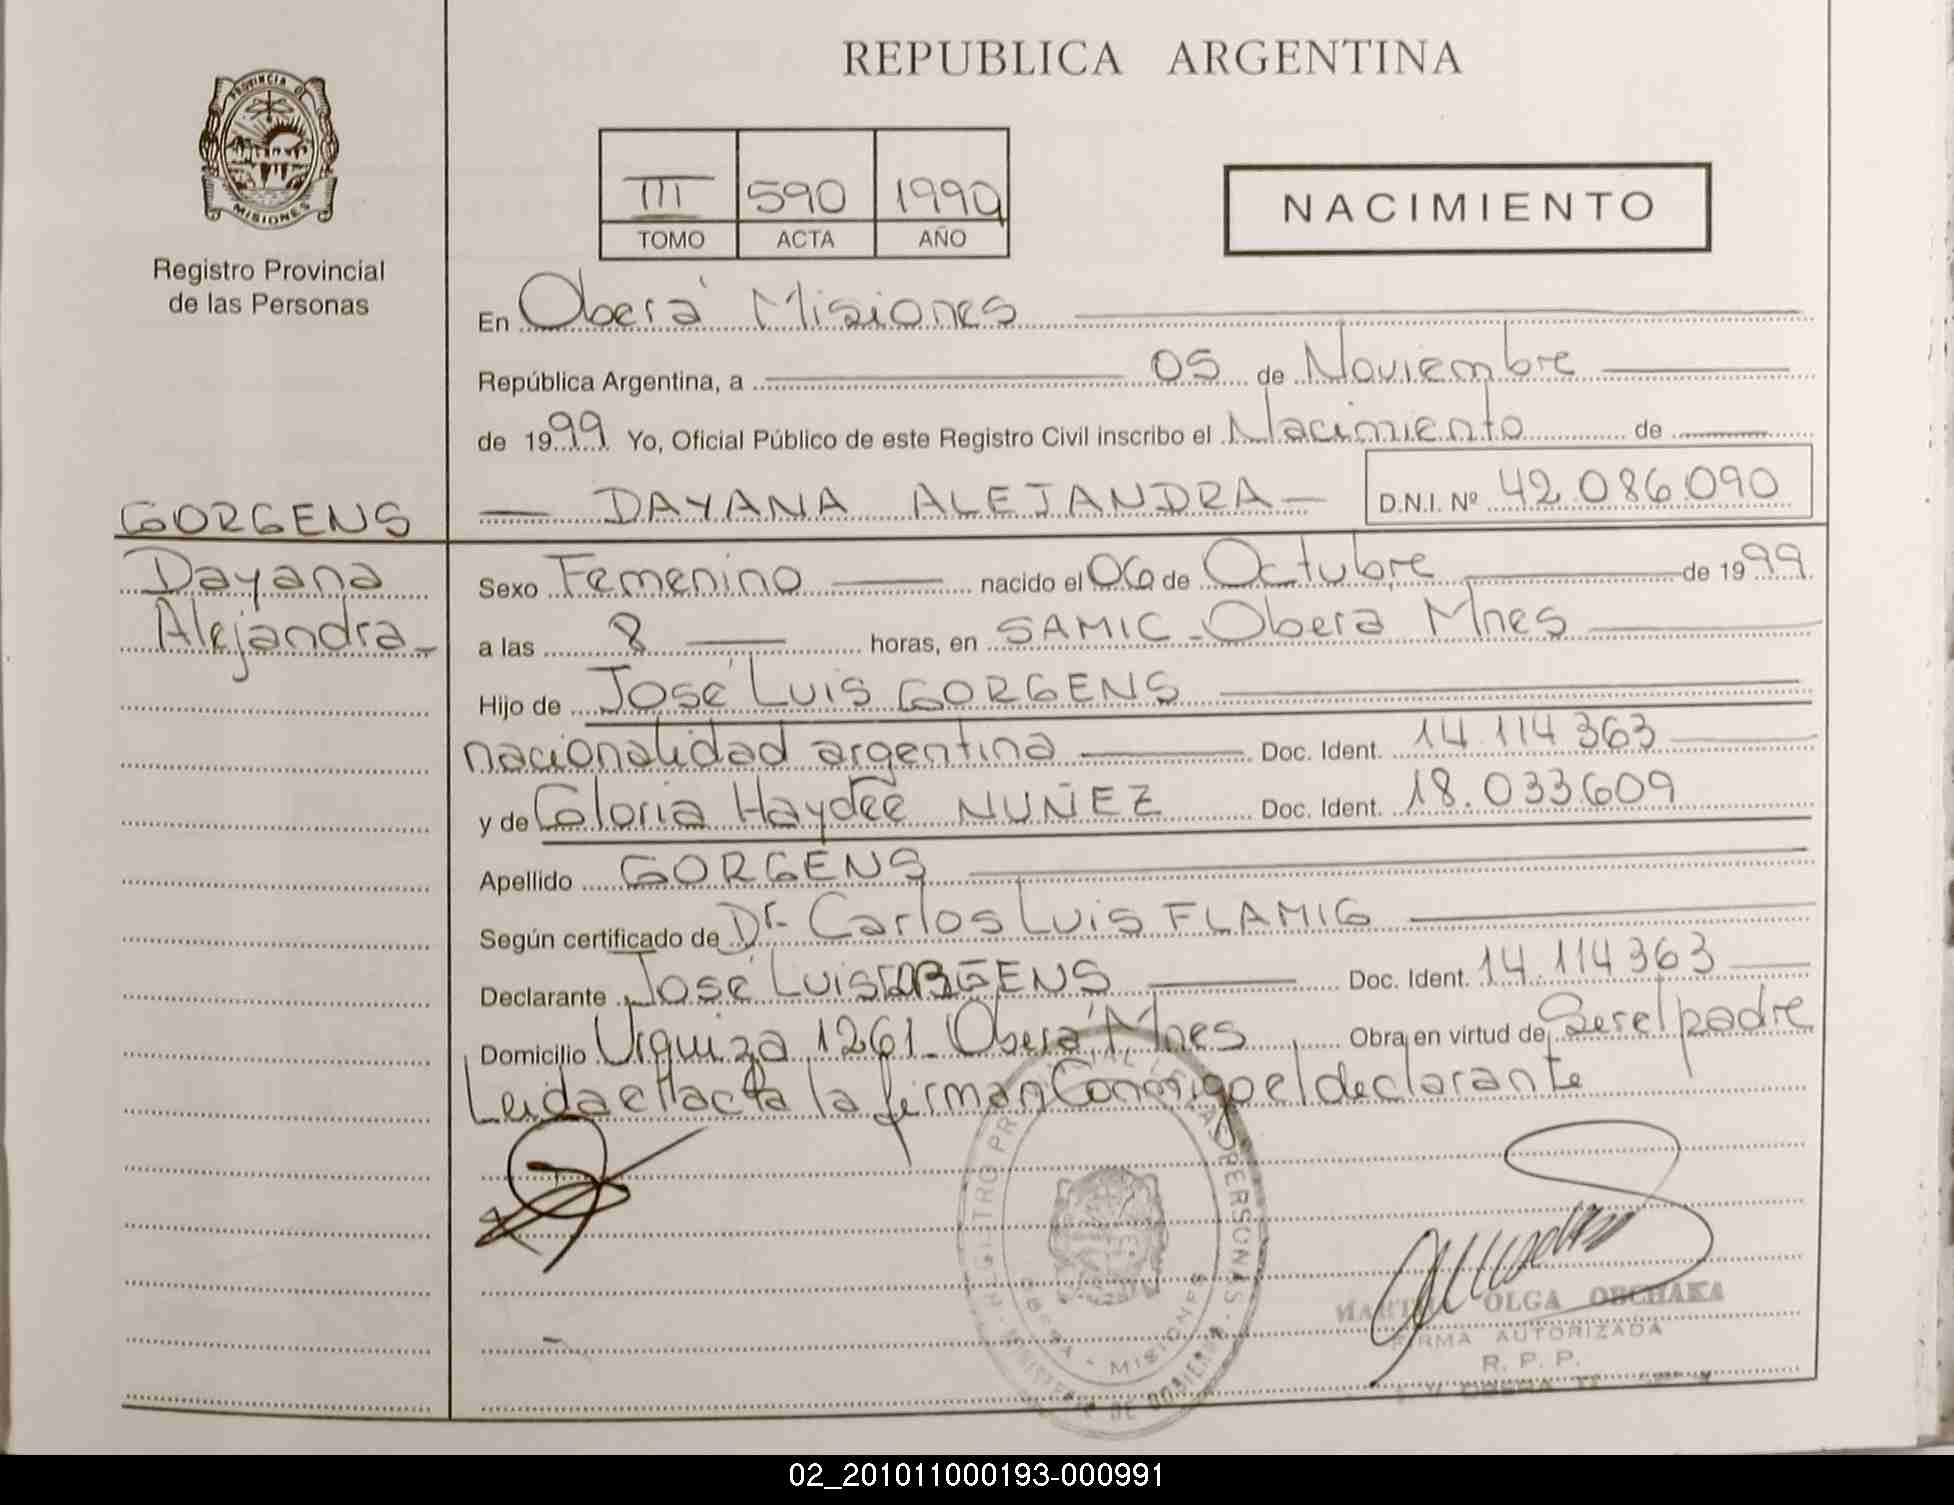 REPUBLICA ARGENTINA
PROVINCIA D
MISIONES
Registro Provincial
de las Personas
III 590 1999
TOMO ACTA AÑO
NACIMIENTO
En Oberá Misiones
República Argentina, a 05 de Noviembre
de 1999 Yo, Oficial Público de este Registro Civil inscribo el Nacimiento de
DAYANA ALEJANDRA D.N.I. Nº 42.086.090
GORGENS
Dayana
Alejandra
Sexo Femenino nacido el 06 de Octubre de 1999
a las 8 horas, en SAMIC - Oberá Mnes
Hijo de José Luis GORGENS
nacionalidad argentina Doc. Ident. 14.114.363
y de Gloria Haydeé NUÑEZ Doc. Ident. 18.033.609
Apellido GORGENS
Según certificado de Dr. Carlos Luis FLAMIG
Declarante José Luis GORGENS Doc. Ident. 14.114.363
Domicilio Urquiza 1261 - Oberá Mnes Obra en virtud de Ser el padre
Leida el acta la firman Conmigo el declarante
OBERA - MISIONES
OLGA OBCHAKA
FIRMA AUTORIZADA
R. P. P.
02_201011000193-000991